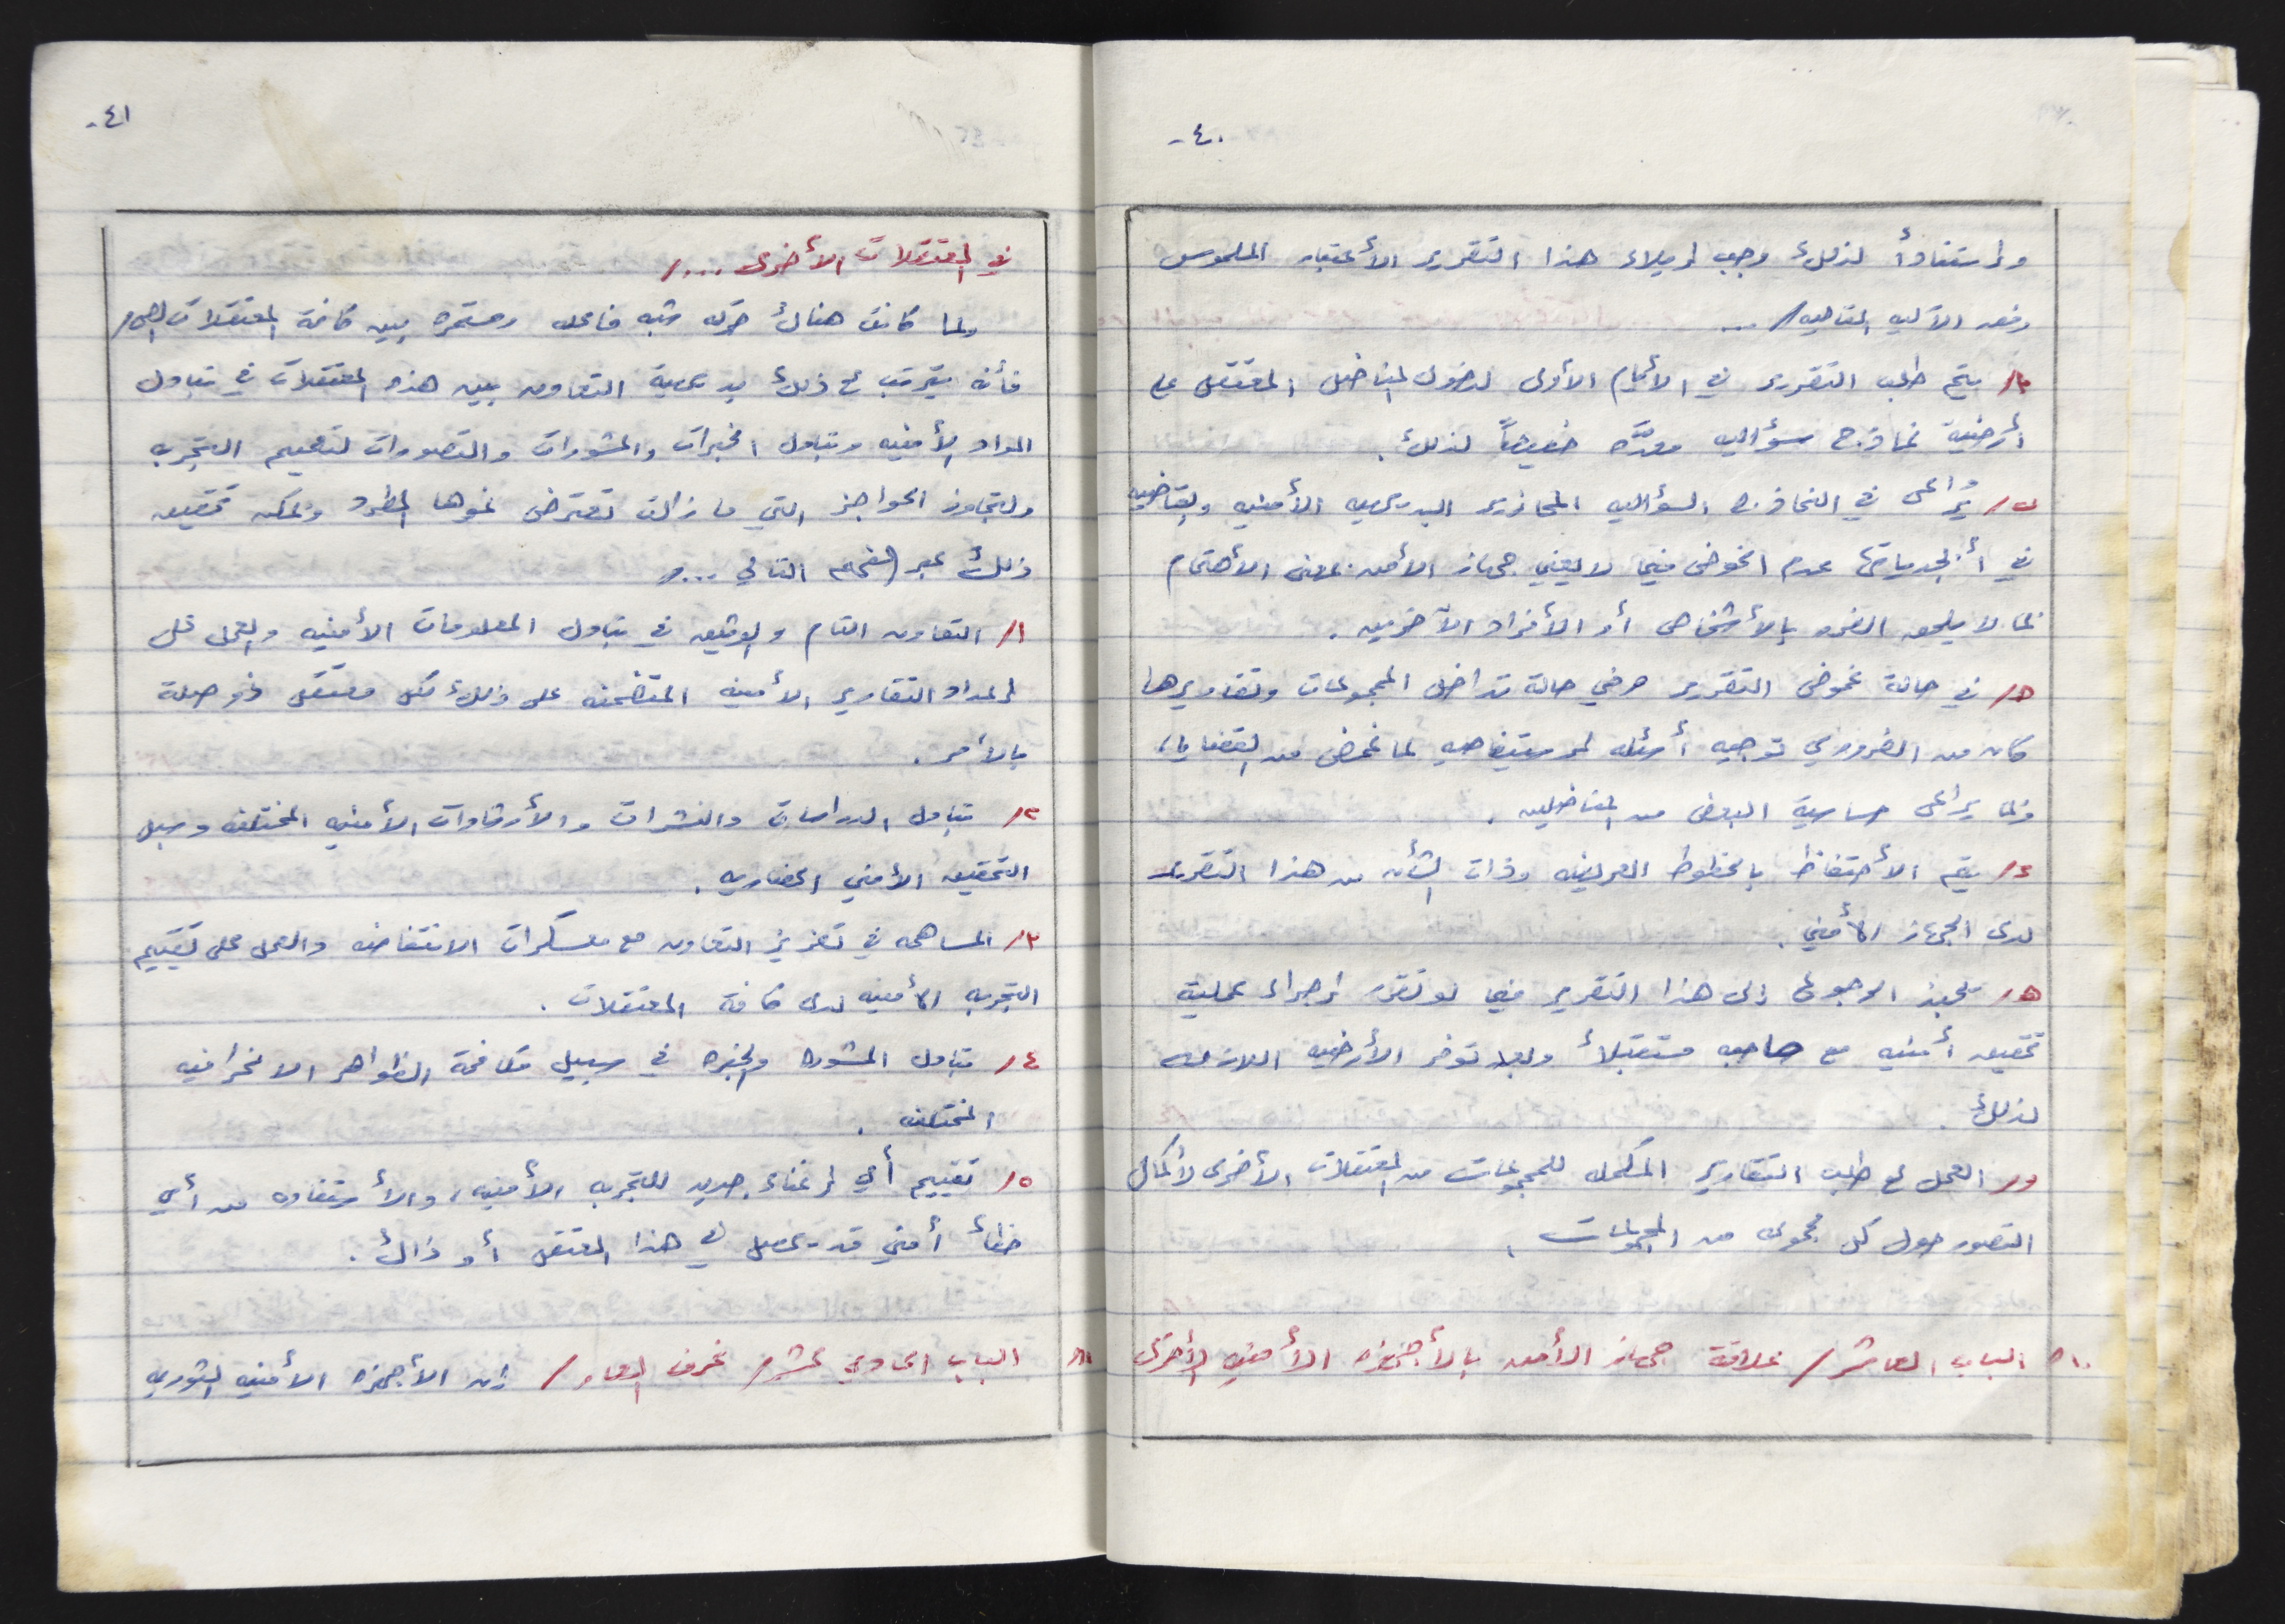 ٤٠-
واستناداً لذلك وجب إيلاء هذا التقرير الأعتبار الملموس
وفق الآليه التاليه/...
أ/ يتم طلب التقرير في الأيام الأولى لدخول المناضل المعتقل على
أرضية نماذج سؤاليه معدّه خصيصاً لذلك.
ب/ يُراعى في النماذج السؤاليه المحاذير البديهيه الأمنيه والقاضيه
في أبجدياتها عدم الخوض فيما لا يعني جهاز الأمن بمعنى الأهتمام
بما لا يلحق الضرر بالأشخاص أو الأفراد الآخرين.
ج/ في حالة غموض التقرير وفي حالة تداخل المجموعات وتقاريرها
كان من الضروري توجيه أسئله إستيضاحيه لما غمض من القضايا،
وبما يراعى حساسية البعض من المناضلين.
د/ يتم الأحتفاظ بالخطوط العريضه وذات الشأن من هذا التقرير
لدى الجهاز الأمني.
هـ/ يحبذ الرجوع إلى هذا التقرير فيما لو تقرر إجراء عملية
تحقيق أمنيه مع صاحبه مستقبلاً وبعد توفر الأرضيه اللازمه
لذلك.
و/ العمل على طلب التقارير المكمله للمجموعات من المعتقلات الأخرى لأكمال
التصور حول كل مجموعه من المجموعات.
١٠/ الباب العاشر/ علاقة جهاز الأمن بالأجهزه الأمنيه الأخرى
٤١-
في المعتقلات الأخرى.../
ولما كانت هنالك حركه شبه فاعله ومستمره بين كافة المعتقلات
فأنه يترتب على ذلك بديهية التعاون بين هذه المعتقلات في تبادل
المواد الأمنيه وتبادل الخبرات والمشورات والتصورات لتعميم التجربه
ولتجاوز الحواجز التي ما زالت تعترض نموها المطرد ويمكن تحقيق
ذلك عبر التالي.../
١/ التعاون التام والوثيق في تبادل المعلومات الأمنيه والعمل على
إعداد التقارير الأمنيه المتضمنه على ذلك لكل معتقل ذو صلة
بالأمر.
٢/ تبادل الدراسات والنشرات والأرشادات الأمنيه المختلفه وسبل
التحقيق الأمني الحضاريه.
٣/ المساهمه في تعزيز التعاون مع معسكرات الانتفاضه والعمل على تقييم
التجربه الأمنيه لدى كافة المعتقلات.
٤/ تبادل المشوره والخبره في سبيل مكافحة الظواهر الانحرافيه
المختلفه.
٥/ تقييم أي إغناء جديد للتجربه الأمنيه، والأستفاده من أي
خطأ أمني قد يحصل في هذا المعتقل أو ذاك.
١١/ الباب الحادي عشر/ غرف العار/ إن الأجهزه الأمنيه الثوريه